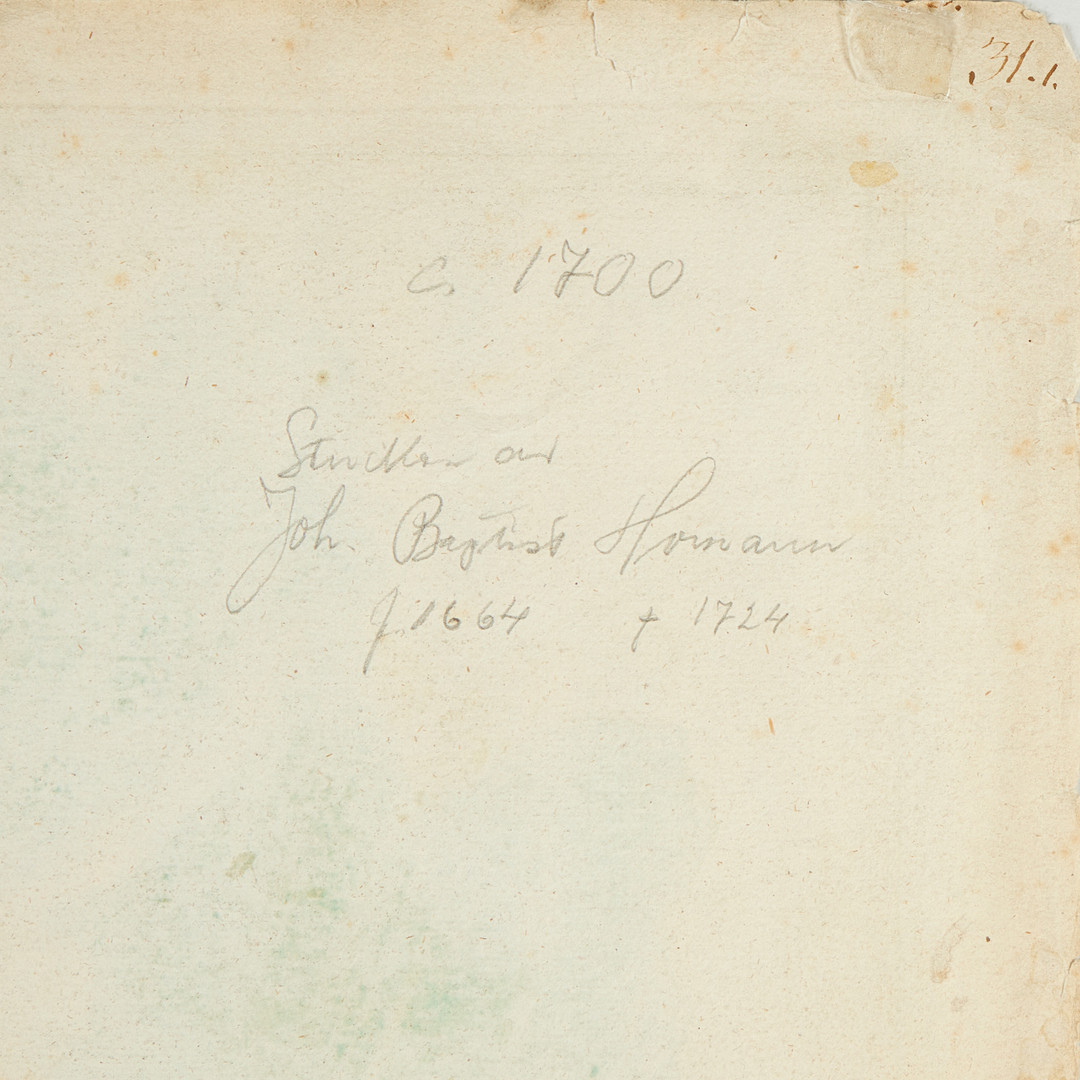 31.1.
c. 1700
Stukken av
Joh. Baptist Homann
f. 1664 + 1724